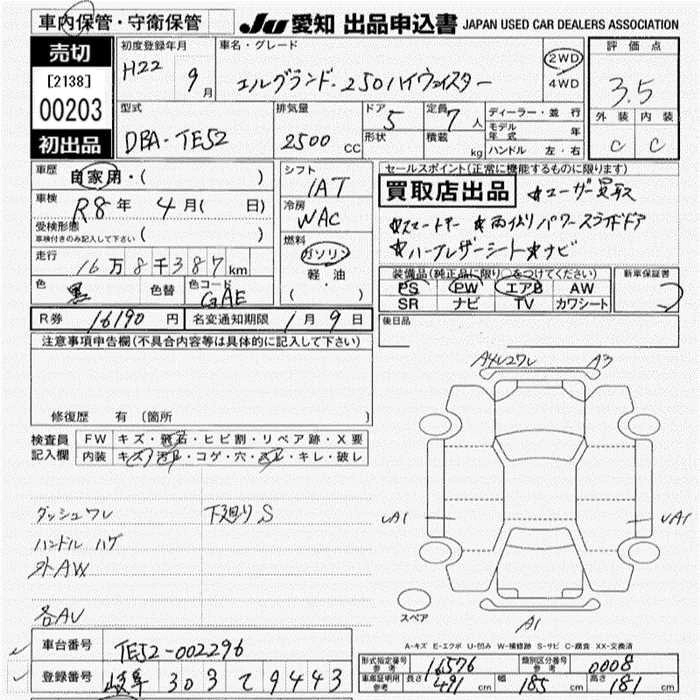 車内保管・守衛保管
JU 愛知 出品申込書 JAPAN USED CAR DEALERS ASSOCIATION
売切
[2138]
00203
初出品
初度登録年月
H22 9月
車名・グレード
エルグランド・250ハイウェイスター
2WD
4WD
評価点
3.5
外装 内装
C C
型式
DBA-TE52
排気量
2500 CC
ドア 5
形状
定員 7人
積載 kg
ディーラー・並行
モデル年式 年
ハンドル 左・右
車歴
自家用・( )
車検
R8年 4月( 日)
受検形態
車検付きのみ記入して下さい ( )
走行
16万8千387km
色 黒
色替
色コード GAE
シフト
IAT
冷房
WAC
燃料
ガソリン
軽油
( ・ )
セールスポイント(正常に機能するものに限ります)
買取店出品 ★ユーザー買取
★スマートキー ★両側パワースライドドア
★ハーフレザーシート ★ナビ
装備品(純正品に限り○をつけてください)
PS PW エアB AW
SR ナビ TV カワシート
新車保証書
後日品
R券 16190円 名変通知期限 1月9日
注意事項申告欄(不具合内容等は具体的に記入して下さい)
修復歴 有 (箇所 )
検査員
記入欄
FW キズ・飛石・ヒビ割・リペア跡・X要
内装 キズ・汚れ・コゲ・穴・スレ・キレ・破レ
ダッシュワレ 下廻りS
ハンドル ハゲ
外AW
各AU
A4U2ワレ A3
UA1 UA1
A1
スペア
A-キズ E-エクボ U-凹み W-補修跡 S-サビ C-腐食 XX-交換済
車台番号 TE52-002296
登録番号 岐阜 303 て 9443
形式指定番号 参考 16576
類別区分番号 参考 0008
車庫証明用 参考 長さ 491cm 幅 185cm 高さ 181cm